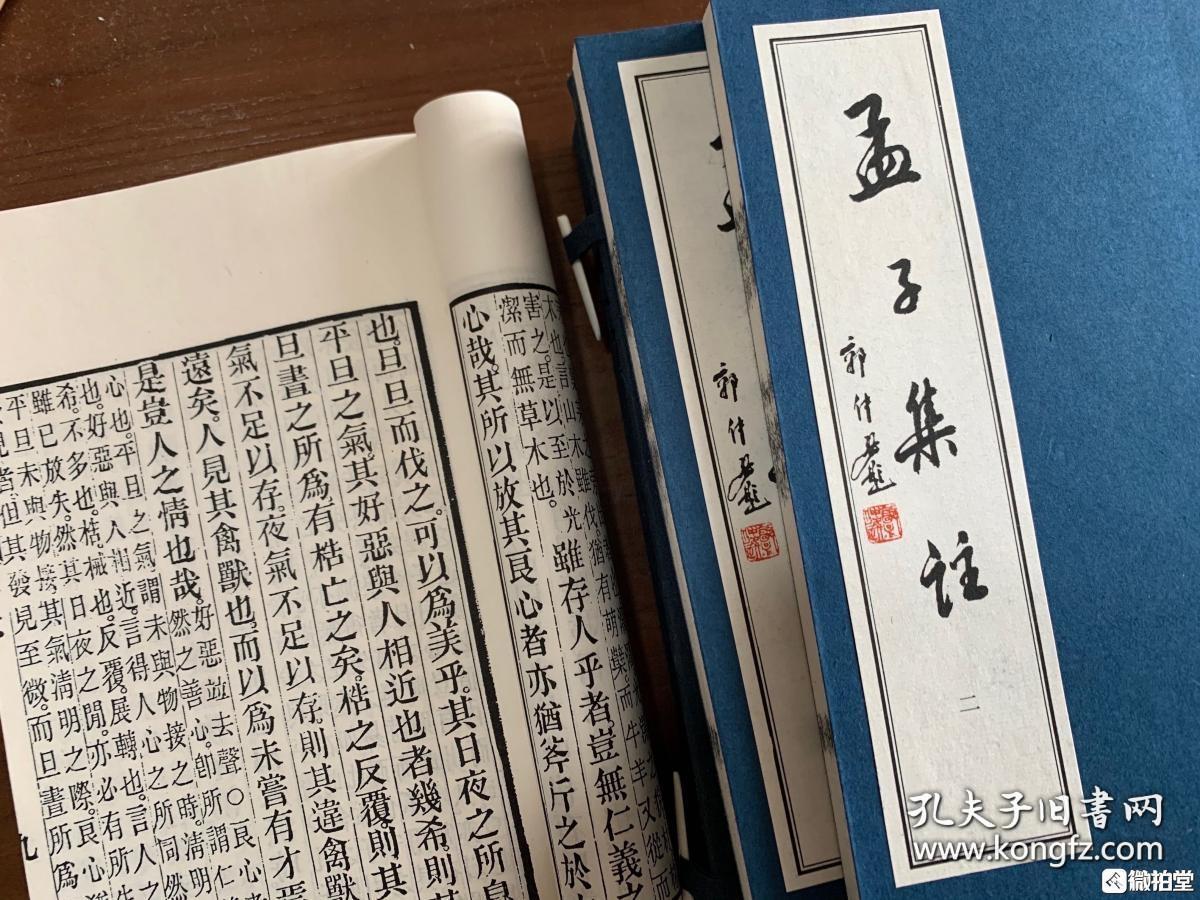 孟子集註
二
郭
郭
害之。是以至於光
潔而無草木也。
雖存人乎者豈無仁義之
心哉。其所以放其良心者亦猶斧斤之於
也。旦旦而伐之。可以爲美乎。其日夜之所息
平旦之氣。其好惡與人相近也者幾希則其
旦晝之所爲有梏亡之矣。梏之反覆。則其
氣不足以存。夜氣不足以存。則其違禽獸
遠矣。人見其禽獸也。而以爲未嘗有才焉
是豈人之情也哉。好惡並去聲○良心者
然之善心。卽所謂仁
心也。平旦之氣。謂未與物接之時。淸明
也。好惡與人相近。言得人心之所同然
也。梏。械也。反覆。展轉也。言人之
希。不多也。
雖已放失。然其日夜之閒。亦必有所生
平旦未與物接。其氣淸明之際。良心猶
見者。但其發見至微。而旦晝所爲
九
孔夫子旧書网
www.kongfz.com
微拍堂